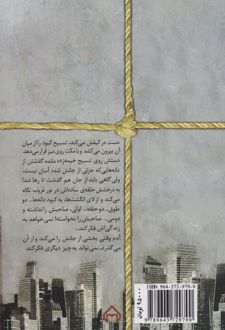 دست در کیفش می‌کند، تسبیح کبود را از میان
آن بیرون می‌کشد و با مکث روی میز قرار می‌دهد.
دستش روی تسبیح خیمه‌زده مانده گذشتن از
دانه‌هایی که جزئی از جانش شده آسان نیست،
ولی گاهی باید از جان هم گذشت تا رها شد!
به درخشش حلقه‌ی ساده‌اش در نور غروب نگاه
می‌کند و از لای انگشت‌ها، به کبود دانه‌ها.. دو
طوق.. دو حلقه.. اولی، صاحبش را نداشته و
دومی، صاحبش را نخواسته! نمی‌خواهد به
زندگی‌اش فکر کند..
آدم وقتی بخشی از جانش را می‌کند و از آن
می‌گذرد، نمی‌تواند به چیز دیگری فکر کند.
ISBN 964-372-979-0
9789643729790
۹۵۰۰۰ تومان